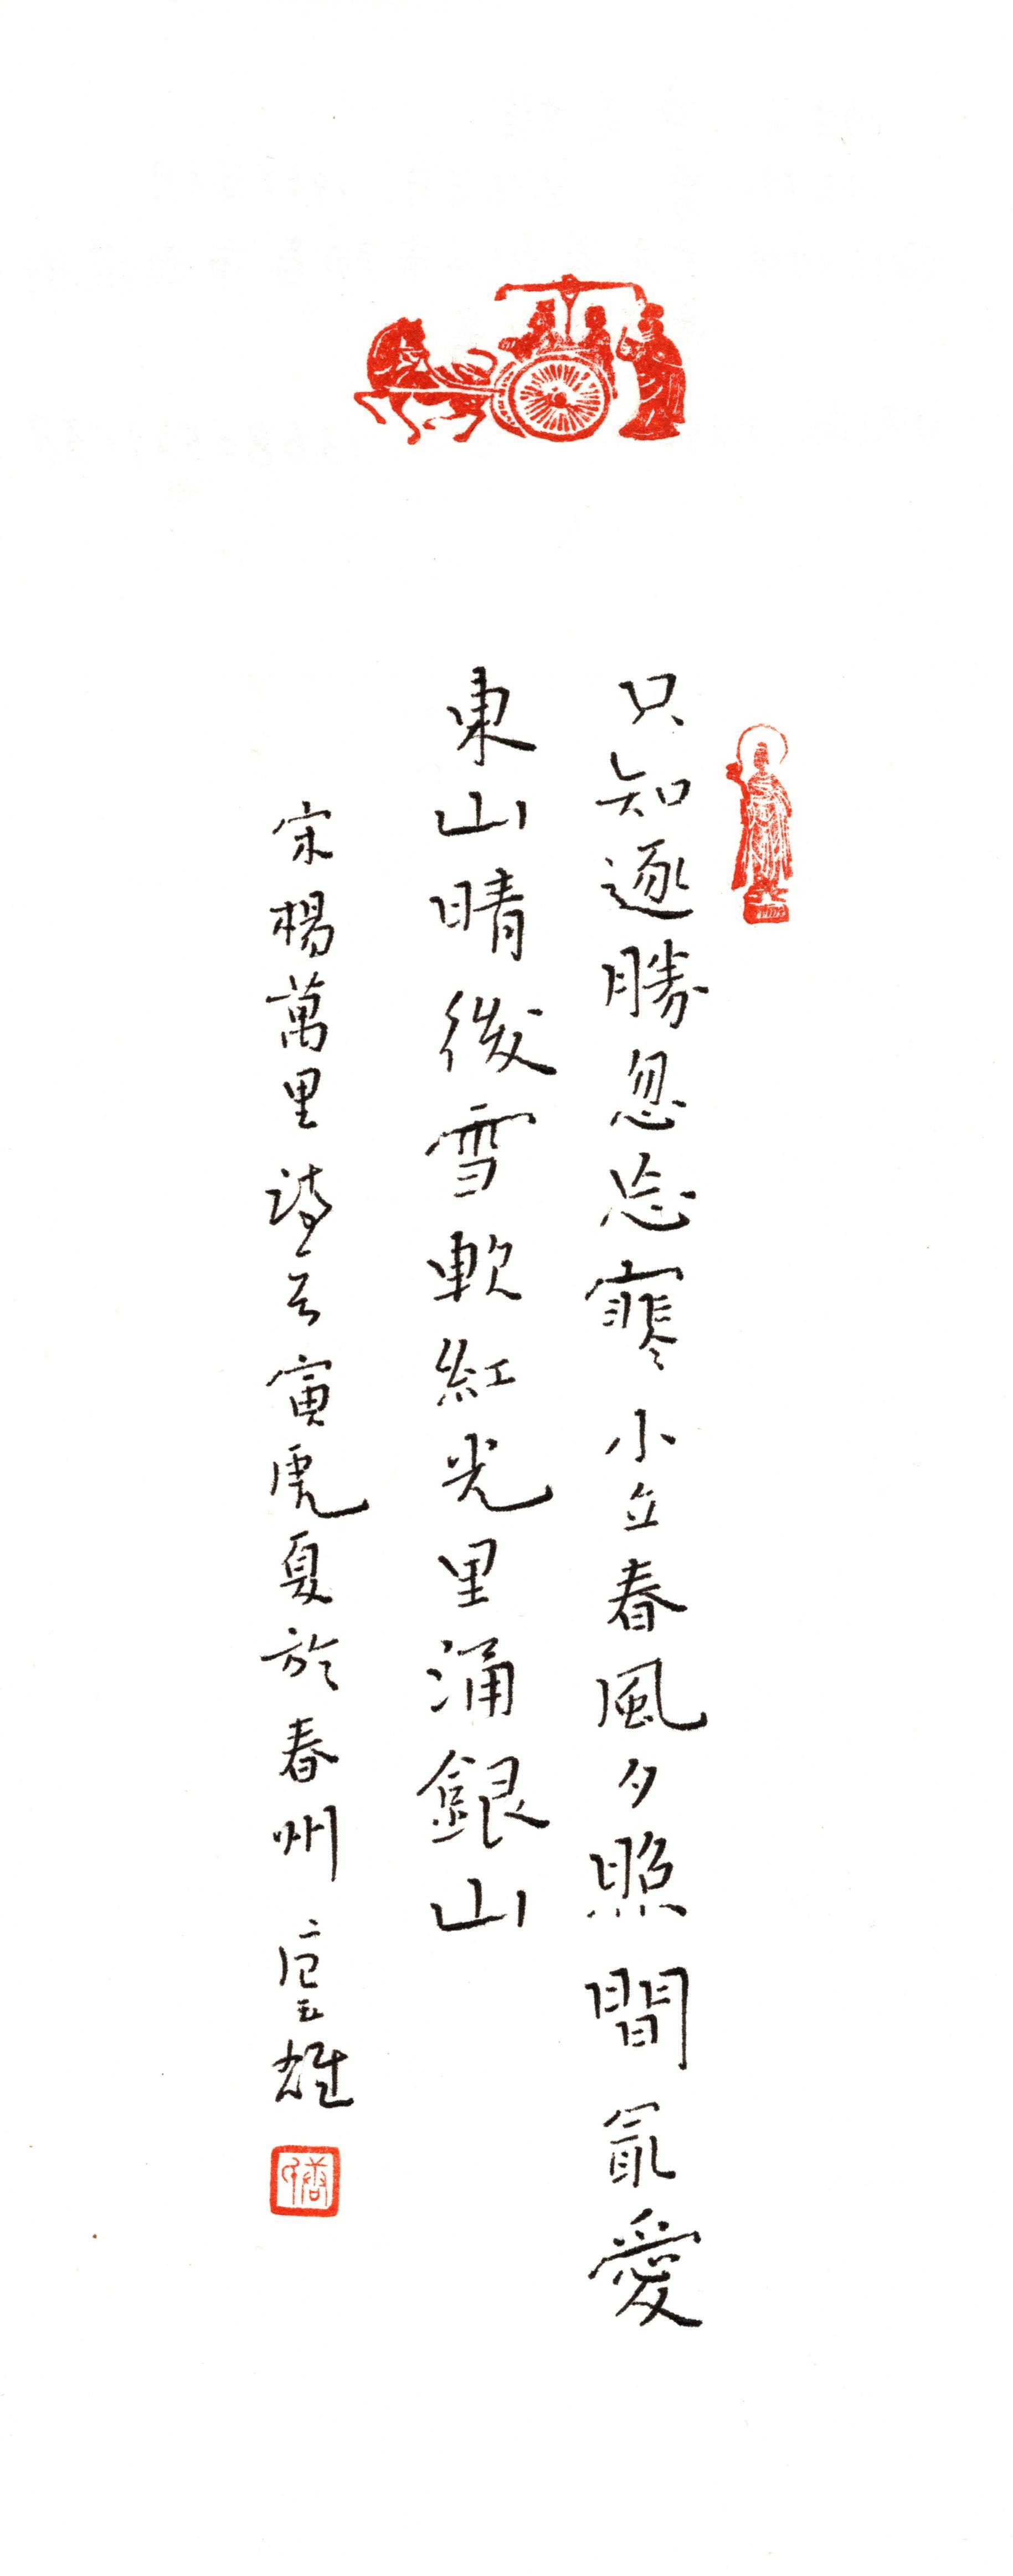 只知逐勝忽忘寒小立春風夕照間冣愛
東山晴後雪軟紅光里涌銀山
宋楊萬里詩寅虎夏於春州雄